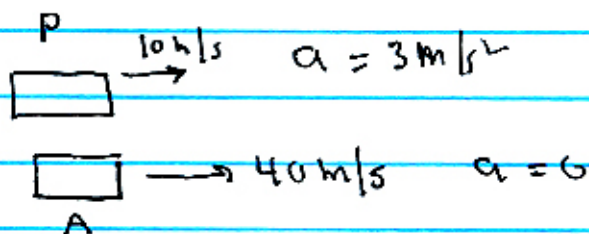 P
10 m/s a = 3 m/s²
40 m/s a = 0
A